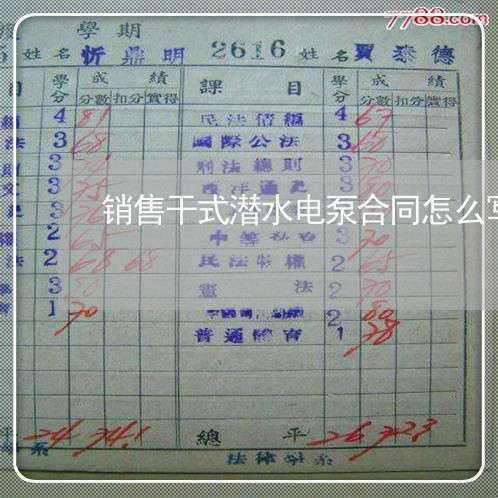 7788.com
學期
姓名 忻鼎明 2616 姓名 賈泰德
目 學分 成績 分數 扣分 實得 課目 學分 成績 分數 扣分 實得
4 81 民法債編 4 67
法 3 68 國際公法 3 60
3 刑法總則 3 70
3 75 西洋通史 3 80
销售干式潜水电泵合同怎么写
2 65 3 70
法 2 68 68 民法物權 2 65
3 80 憲法 2 70
1 70 2 80
普通體育 1 78
平 24 74.1 總平 26 72.3
系 法律學系